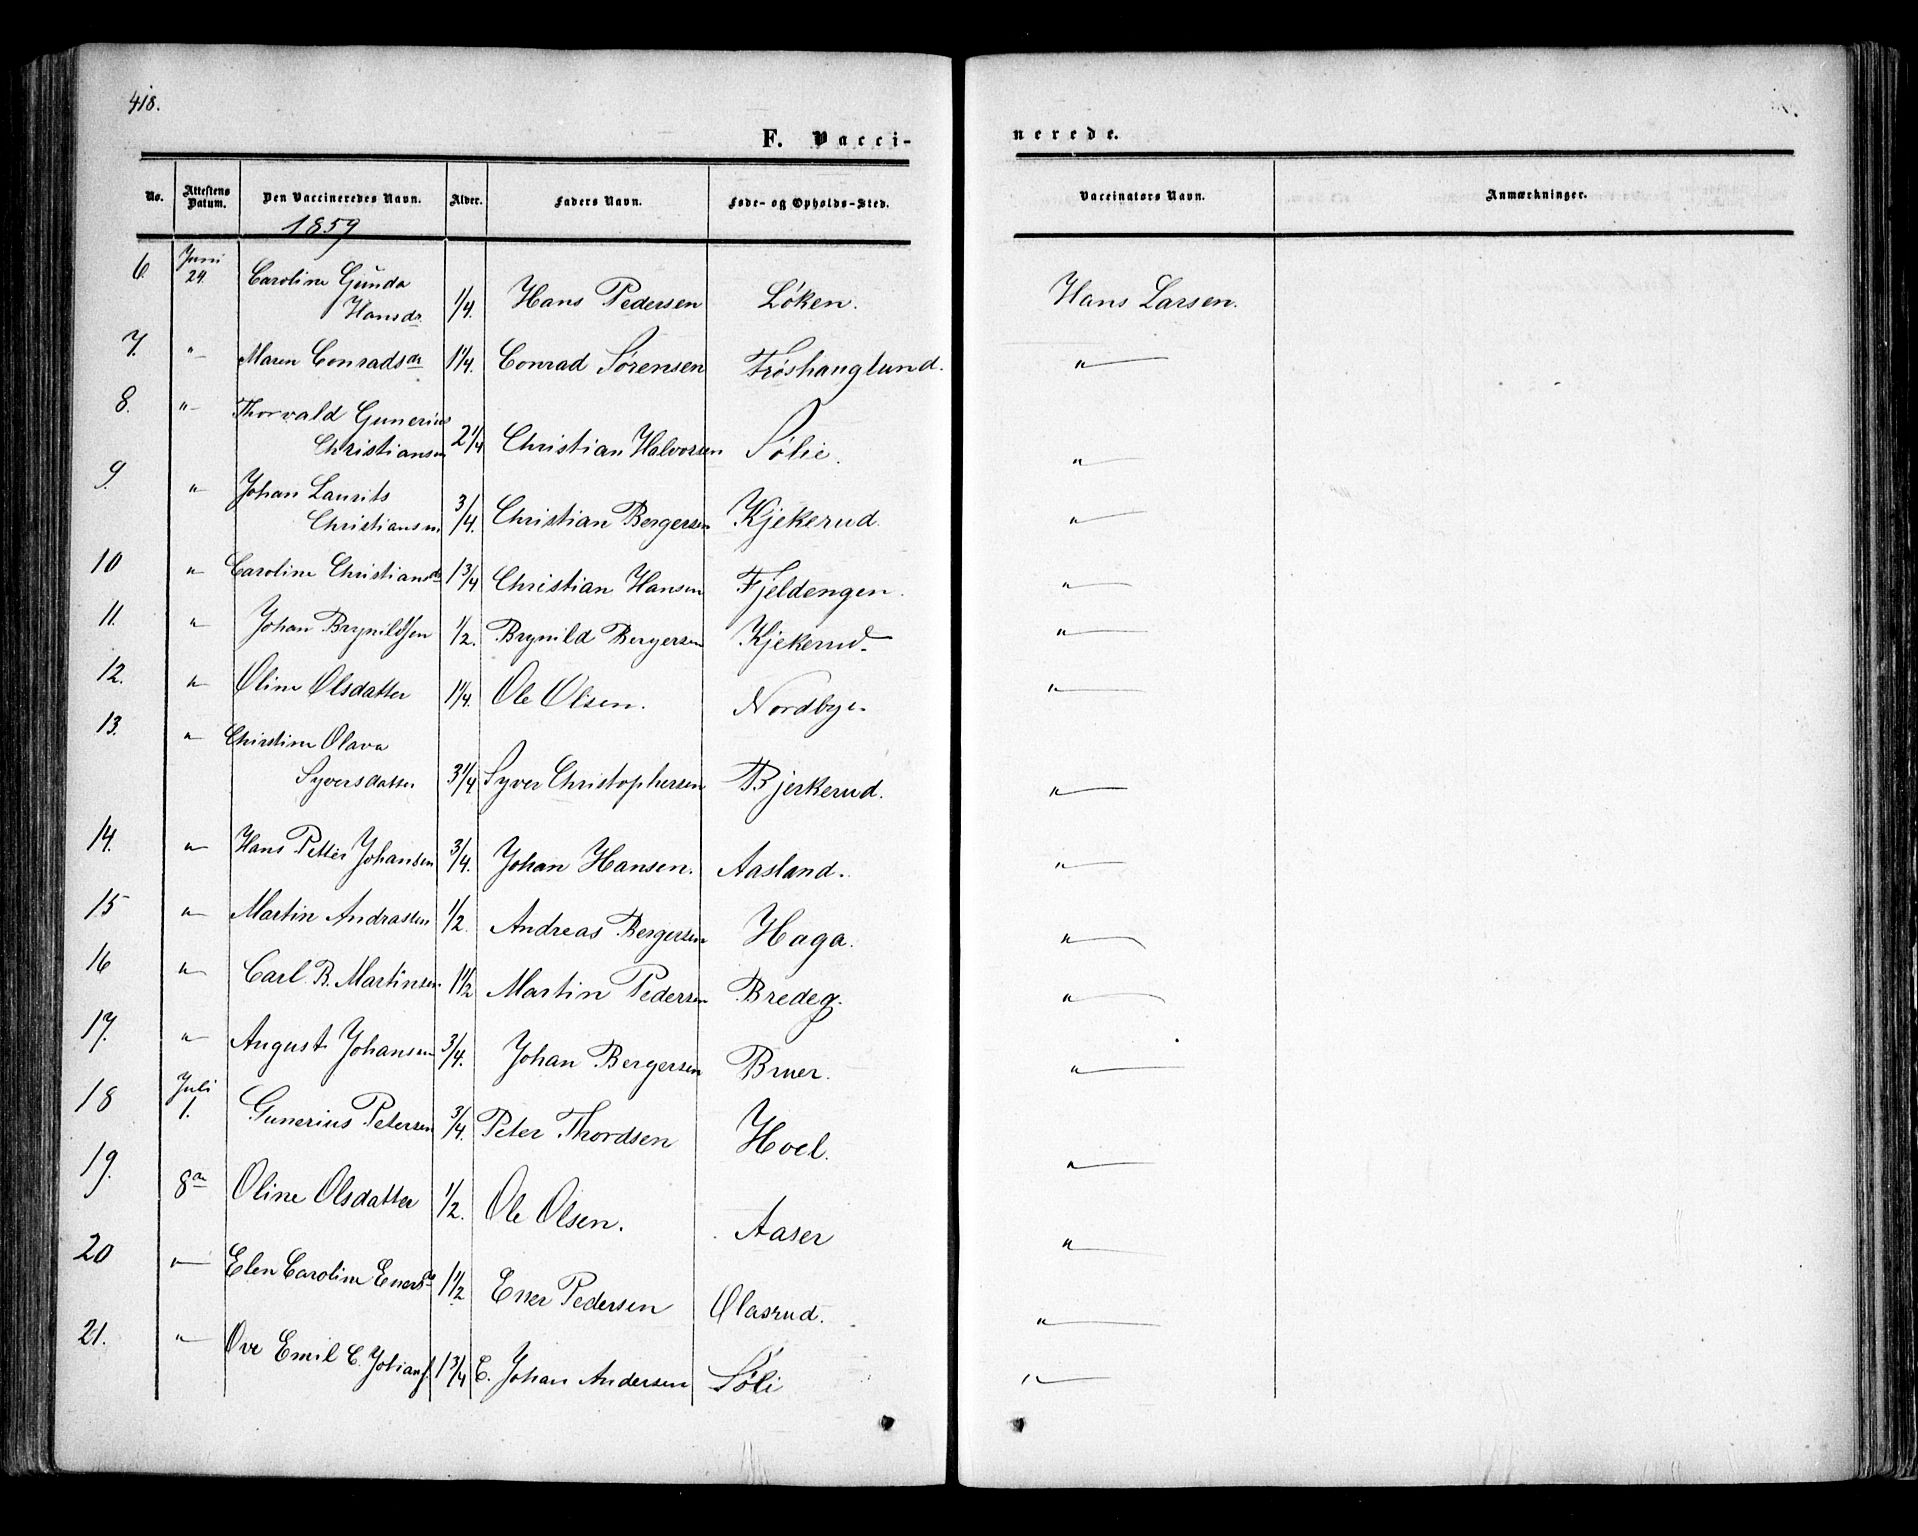 418.
F. Vacci-
nerede.
No.
Attestens Datum.
Den Vaccineredes Navn.
Alder.
Faders Navn.
Føde- og Opholds-Sted.
Vaccinators Navn.
Anmærkninger.
1859
6. Juni 24. Caroline Gunda
Hansdr 1/4. Hans Pedersen Løken. Hans Larsen.
7. " Maren Conradsdr 1 1/4. Conrad Sørensen Frøshauglund. "
8. " Thorvald Gunerius
Christiansen 2 1/4 Christian Halvorsen Sølie. "
9. " Johan Laurits
Christiansen 3/4. Christian Bergersen Kjekerud. "
10 " Caroline Christiansdr 1 3/4 Christian Hansen Fjeldengen. "
11. " Johan Brynildsen 1/2. Brynild Bergersen Kjekerud. "
12. " Oline Olsdatter 1 1/4. Ole Olsen. Nordbye "
13. " Christine Olava
Syversdatter 3 1/4 Syver Christophersen Bjerkerud. "
14. " Hans Petter Johansen 3/4. Johan Hansen. Aasland. "
15 " Martin Andrassen 1/2. Andreas Bergersen Haga. "
16 " Carl B. Martinsen. 1 1/2 Martin Pedersen Bredeg. "
17. " August Johansen 3/4. Johan Bergersen Bruer. "
18 Juli 1. Gunerius Petersen 3/4. Peter Thordsen Hoel. "
19. 8de Oline Olsdatter 1/2. Ole Olsen. Aaser "
20 " Elen Caroline Enersdr 1 1/2 Ener Pedersen Olasrud. "
21. " Ove Emil C. Johans. 1 3/4 C. Johan Andersen Søli "